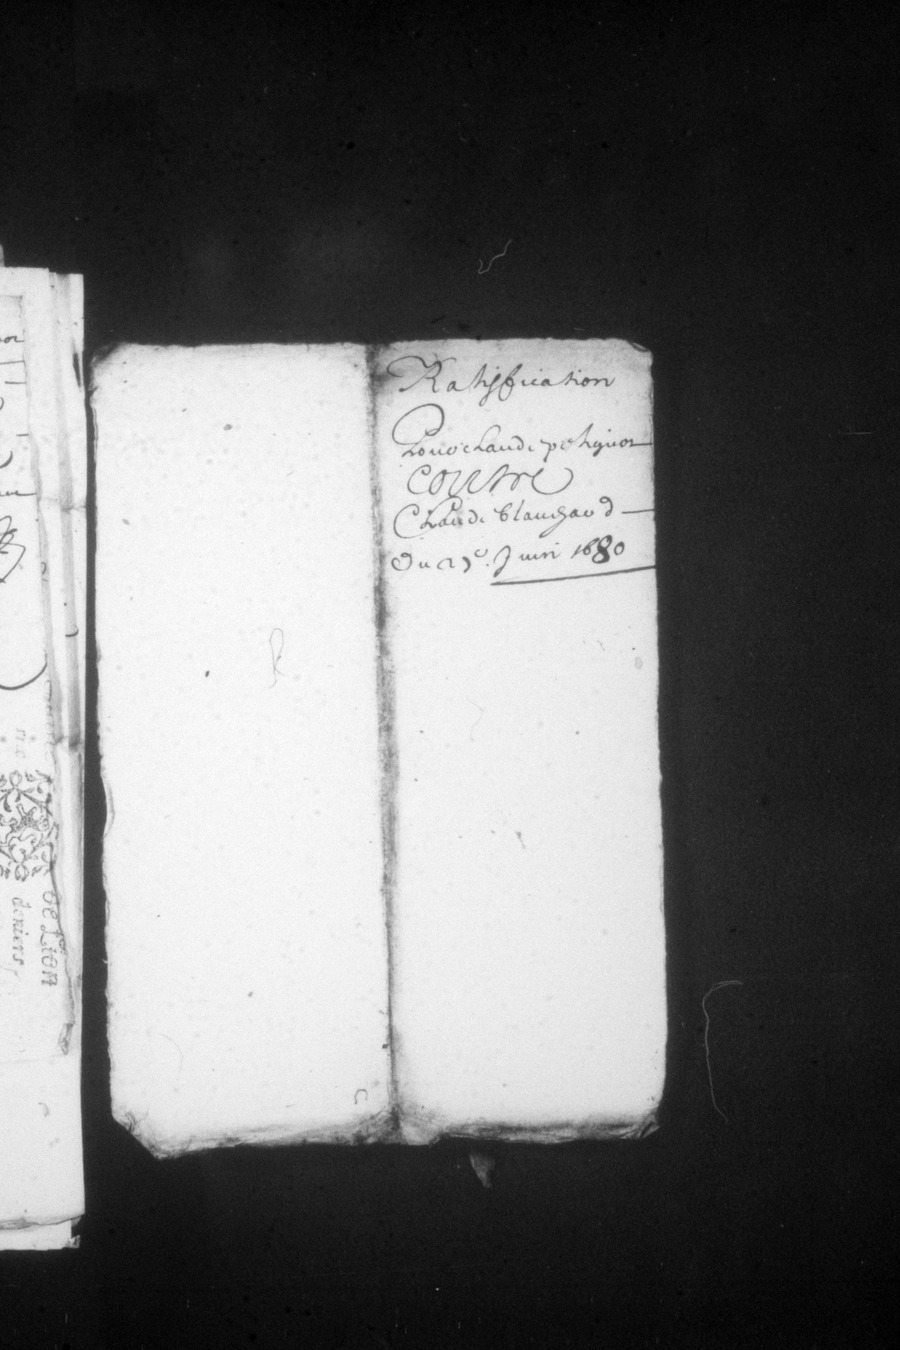 Ratiffication
Pour claude petignor
contre
Claude blanchard
Du 23e. Juin 1680
de Lion
deniers